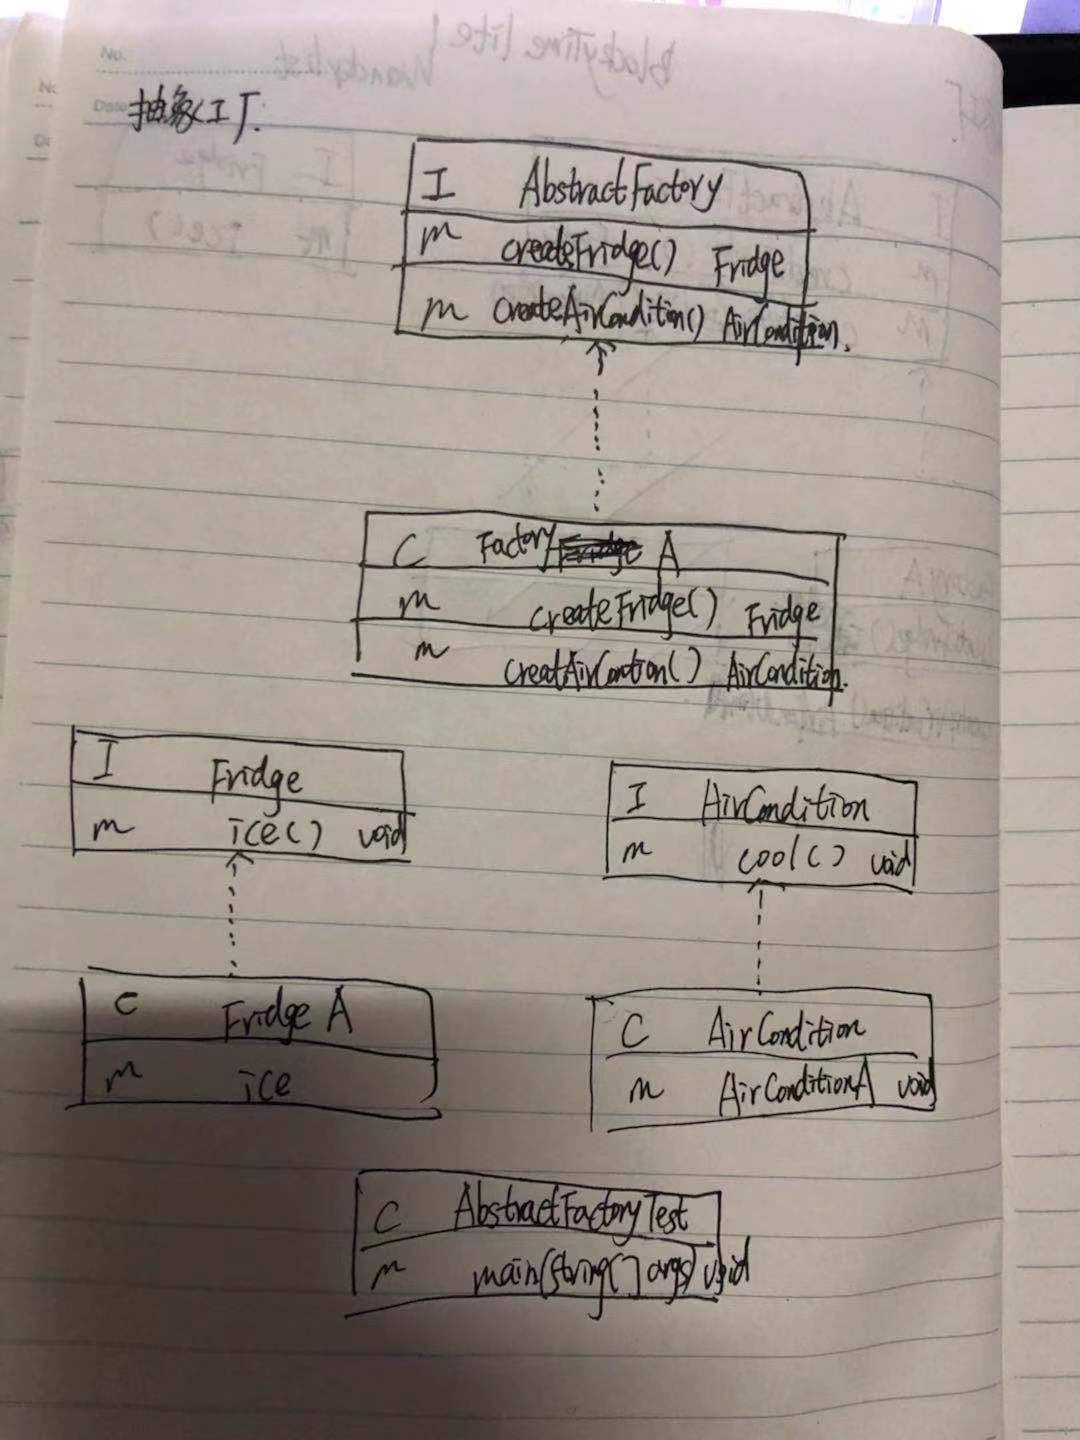 No.
Date
抽象工厂.
I AbstractFactory
m createFridge() Fridge
m createAirCondition() AirCondition.
C Factory A
m createFridge() Fridge
m creatAirContion() AirCondition.
I Fridge
m ice() void
I AirCondition
m cool() void
C Fridge A
m ice
C AirCondition
m AirConditionA void
C AbstractFactoryTest
m main(string[] args) void